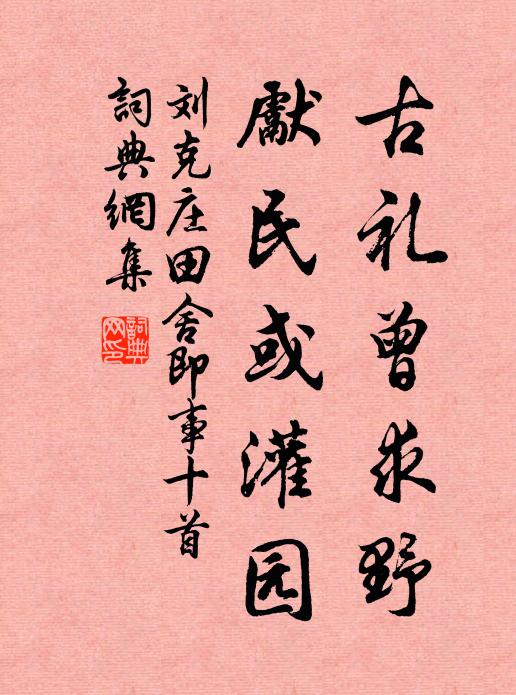 古礼曾求野
獻民或灌园
刘克庄田舍即事十首
詞典網集
詞典
网印